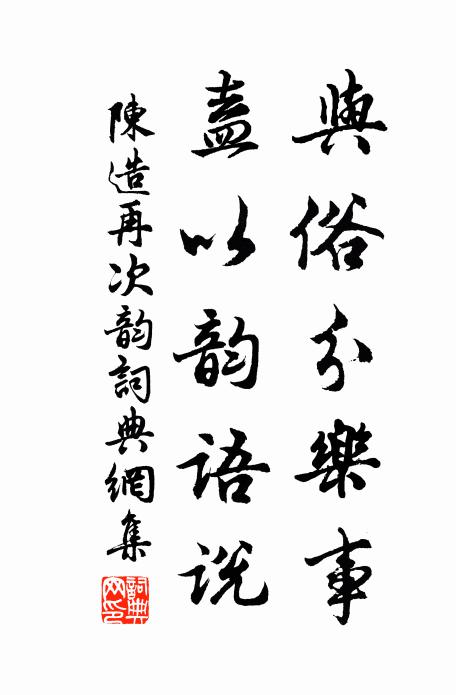 與俗分樂事
盍以韵語説
陳造再次韵詞典網集
詞典網印